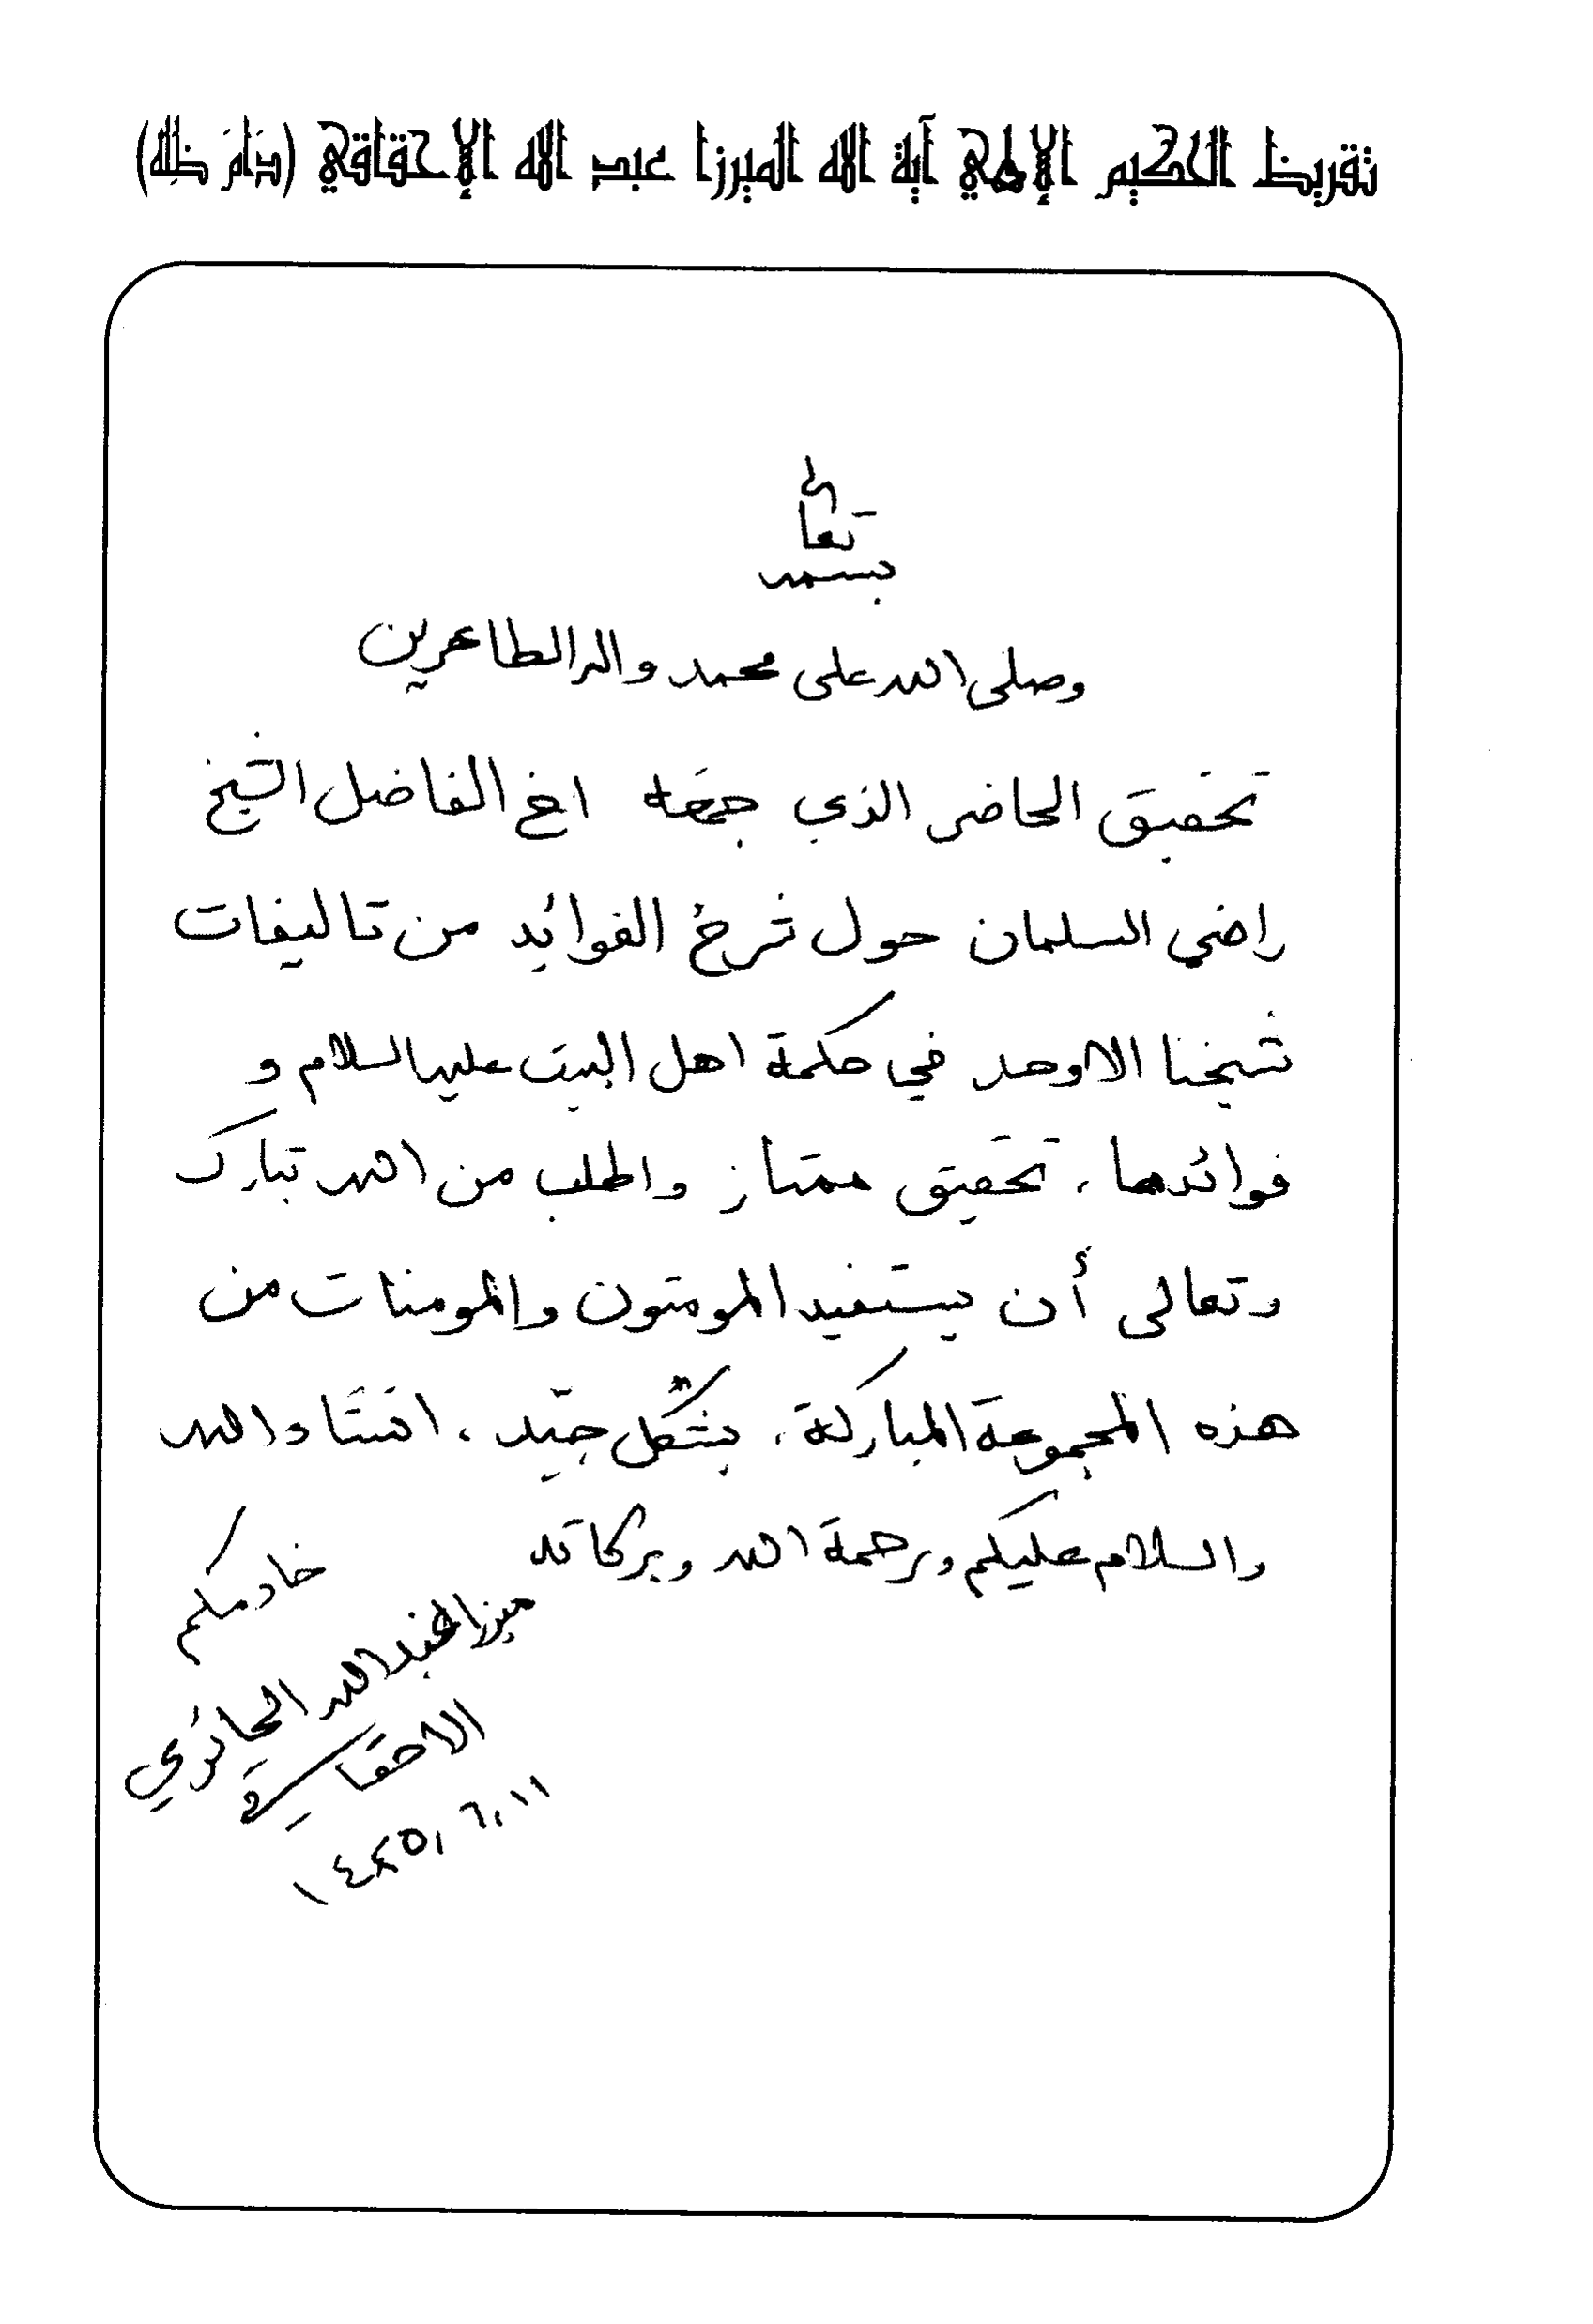 تقريظ الحكيم الإلهي آية الله الميرزا عبد الله الإحقاقي (دَامَ ظِلُّه)
بسمه تعالى
وصلى الله على محمد واله الطاهرين
تحقيق الحاضر الذي جمعه اخ الفاضل الشيخ
راضي السلمان حول شرح الفوائد من تاليفات
شيخنا الاوحد في حكمة اهل البيت عليهم السلام و
فوائدها، تحقيق ممتاز واطلب من الله تبارك
وتعالى أن يستفيد المومنون والمومنات من
هذه المجموعة المباركة، بشكل جيّد، انشاء الله
والسلام عليكم ورحمة الله وبركاته
خادمكم
ميرزا عبد الله الحائري
الاحقاقي
١٤٢٥,٦,١١